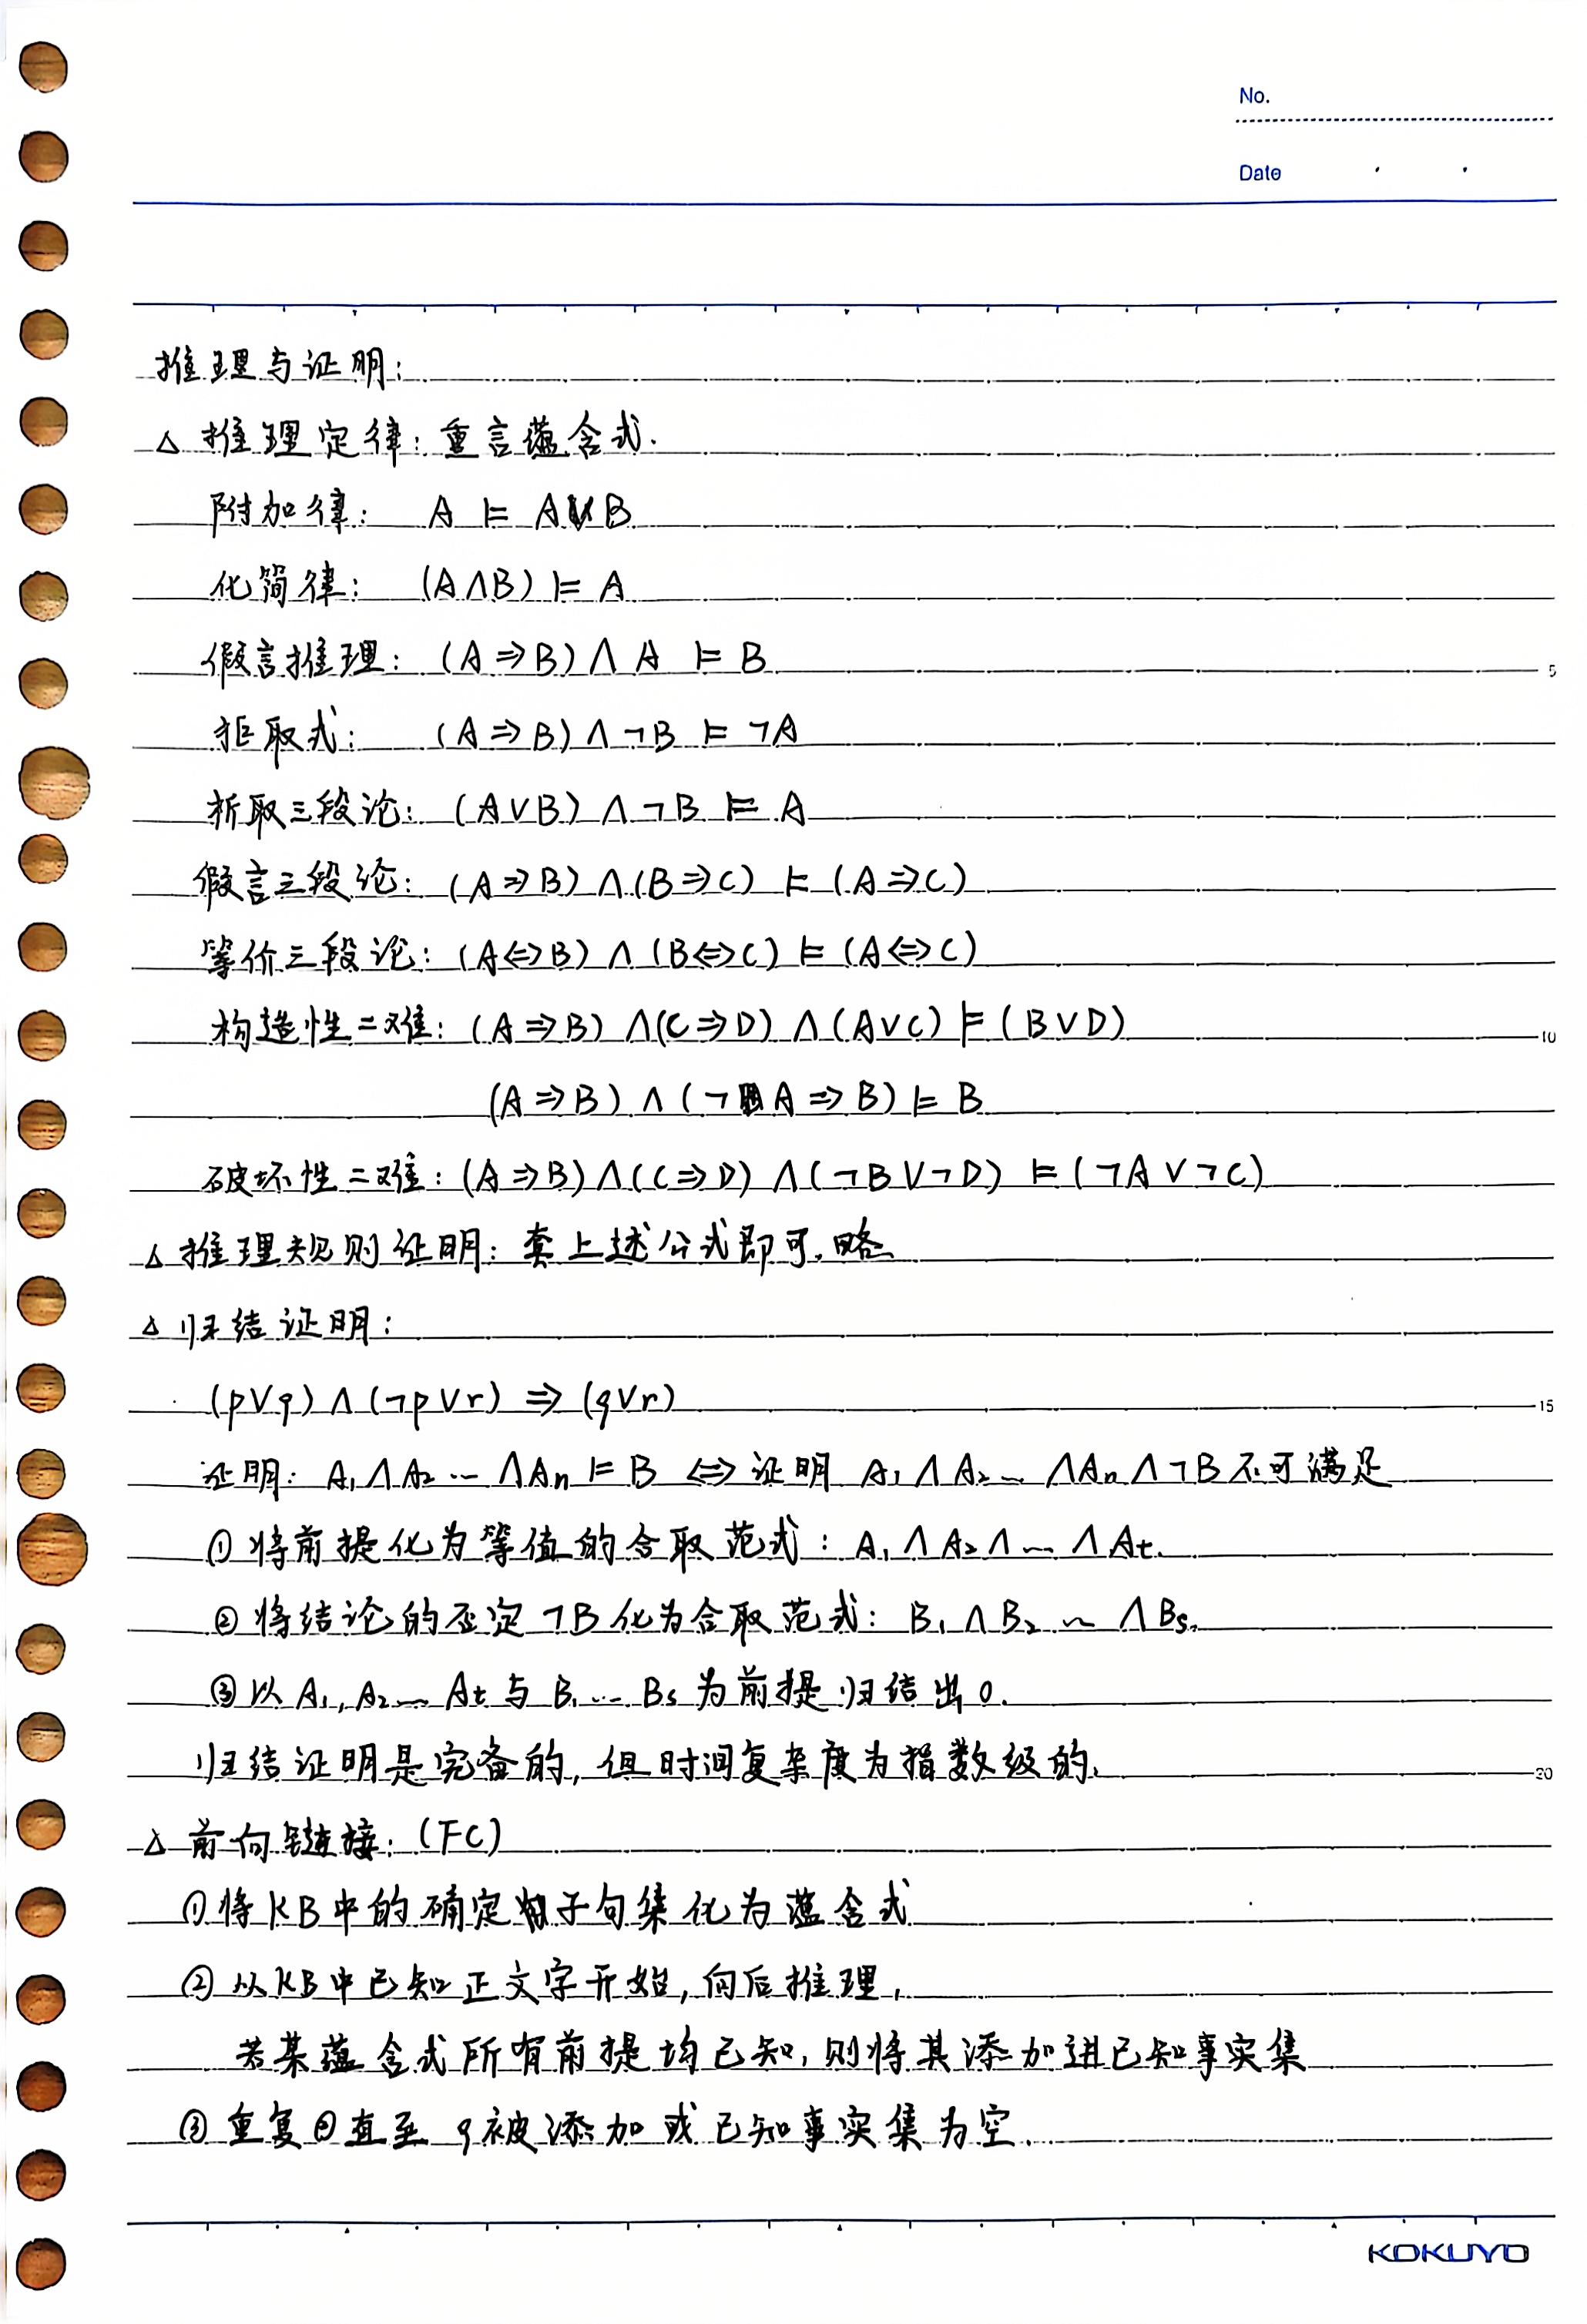 No.
Date
推理与证明:
△ 推理定律: 重言蕴含式.
附加律: A ⊨ A∨B
化简律: (A∧B) ⊨ A
假言推理: (A⇒B)∧A ⊨ B
5
拒取式: (A⇒B)∧¬B ⊨ ¬A
析取三段论: (A∨B)∧¬B ⊨ A
假言三段论: (A⇒B)∧(B⇒C) ⊨ (A⇒C)
等价三段论: (A⇔B)∧(B⇔C) ⊨ (A⇔C)
构造性二难: (A⇒B)∧(C⇒D)∧(A∨C) ⊨ (B∨D)
10
(A⇒B)∧(¬A⇒B) ⊨ B
破坏性二难: (A⇒B)∧(C⇒D)∧(¬B∨¬D) ⊨ (¬A∨¬C)
△ 推理规则证明: 套上述公式即可,略
△ 归结证明:
(p∨q)∧(¬p∨r) ⇒ (q∨r)
15
证明: A₁∧A₂…∧Aₙ ⊨ B ⇔ 证明 A₁∧A₂…∧Aₙ∧¬B 不可满足
① 将前提化为等值的合取范式: A₁∧A₂∧…∧At.
② 将结论的否定¬B化为合取范式: B₁∧B₂…∧Bs.
③ 以 A₁,A₂…At 与 B₁…Bs 为前提归结出0.
归结证明是完备的,但时间复杂度为指数级的.
20
△ 前向链接: (FC)
① 将KB中的确定子句集化为蕴含式
② 从KB中已知正文字开始,向后推理,
若某蕴含式所有前提均已知,则将其添加进已知事实集
③ 重复②直至 q被添加或已知事实集为空.
KOKUYO